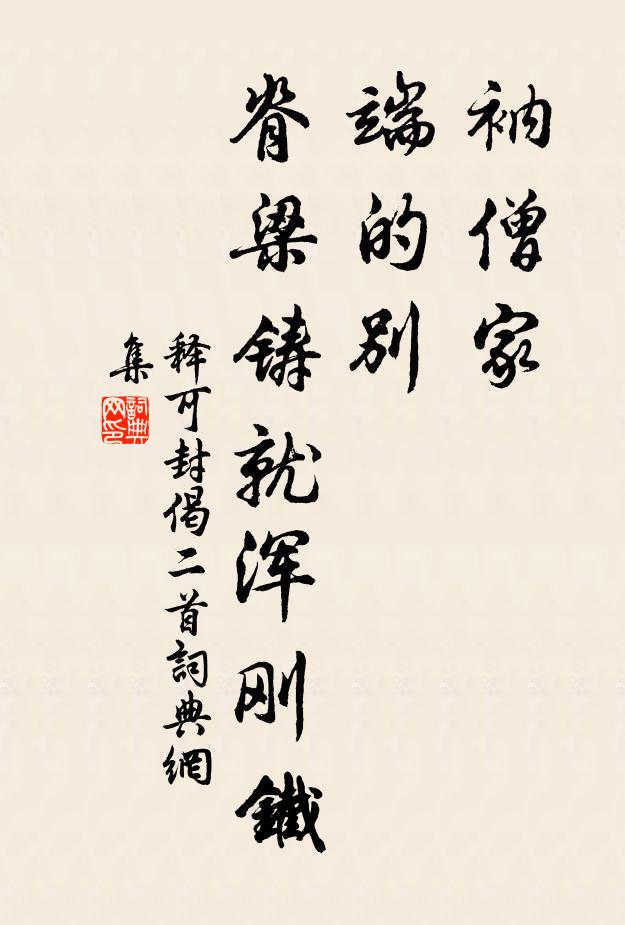 衲僧家
端的别
脊梁铸就浑刚鐵
释可封偈二首詞典網
集
詞典网印